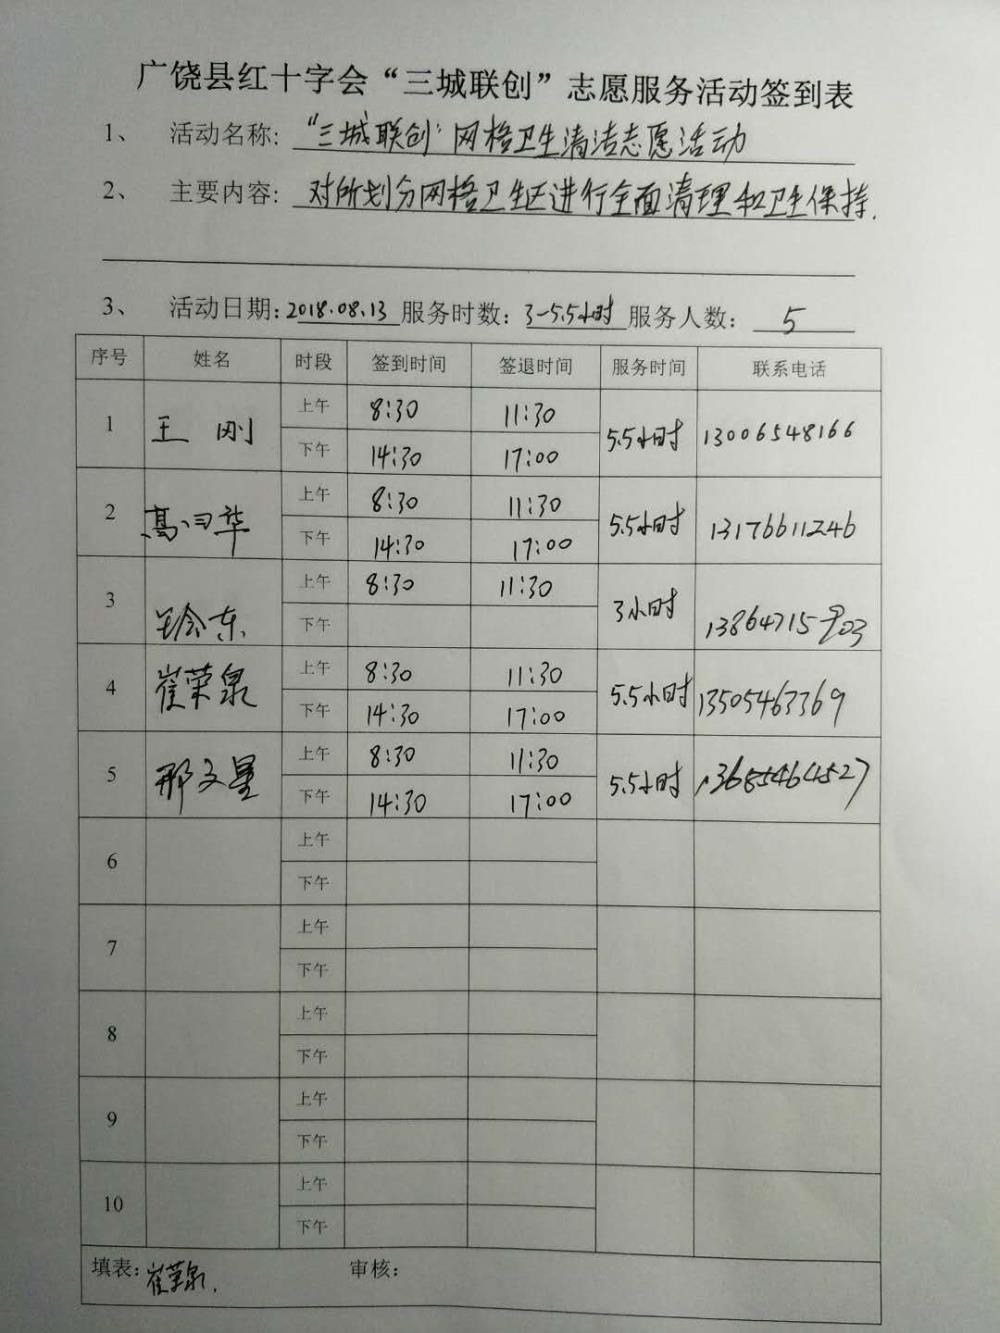 广饶县红十字会“三城联创”志愿服务活动签到表
1、 活动名称: “三城联创”网格卫生清洁志愿活动
2、 主要内容: 对所划分网格卫生区进行全面清理和卫生保持.
3、 活动日期: 2018.08.13 服务时数: 3-5.5小时 服务人数: 5
序号 姓名 时段 签到时间 签退时间 服务时间 联系电话
1 王刚 上午 8:30 11:30 5.5小时 13006548166
下午 14:30 17:00
2 高习华 上午 8:30 11:30 5.5小时 13176611246
下午 14:30 17:00
3 东 上午 8:30 11:30 3小时
下午
4 崔荣泉 上午 8:30 11:30 5.5小时 13505463369
下午 14:30 17:00
5 邢文星 上午 8:30 11:30 5.5小时 13685464527
下午 14:30 17:00
6 上午
下午
7 上午
下午
8 上午
下午
9 上午
下午
10 上午
下午
填表: 崔荣泉. 审核: